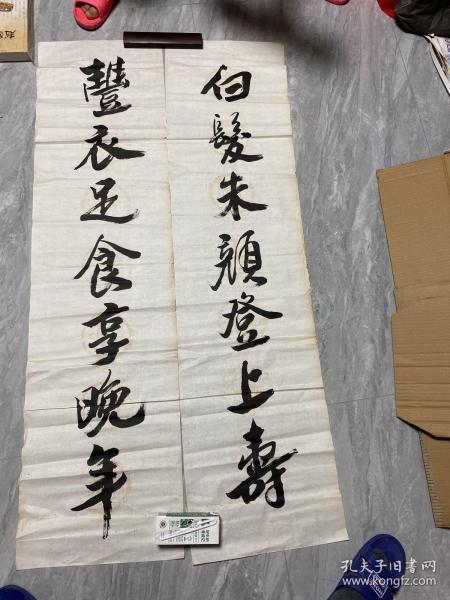 白髮朱顔登上壽
豐衣足食享晚年
孔夫子旧书网